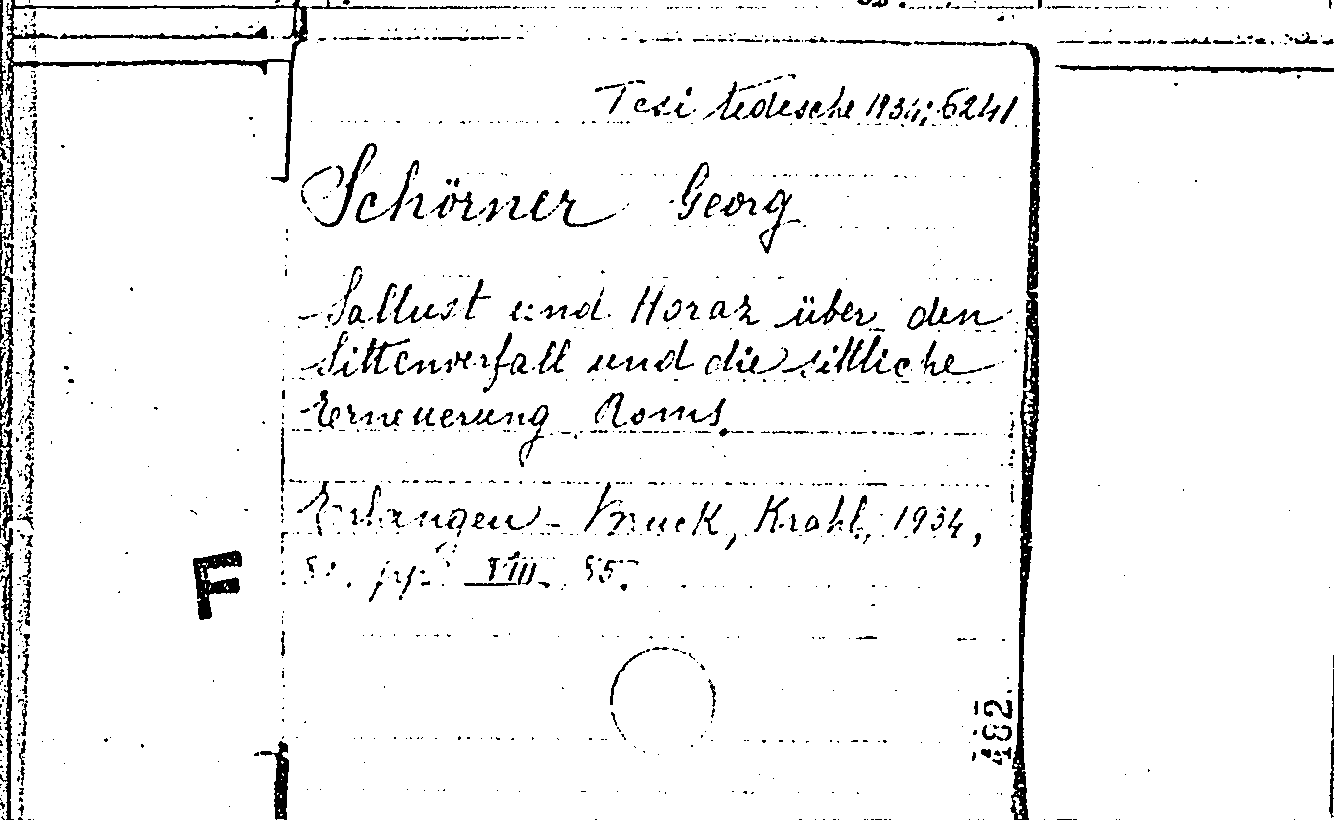 Tesi tedesche 1934; 6241
Schörner Georg
Sallust und Horaz über den
Sittenverfall und die sittliche
Erneuerung Roms.
Erlangen - Bruck, Krahl, 1934,
8°. pp. VIII. 55.
F
482